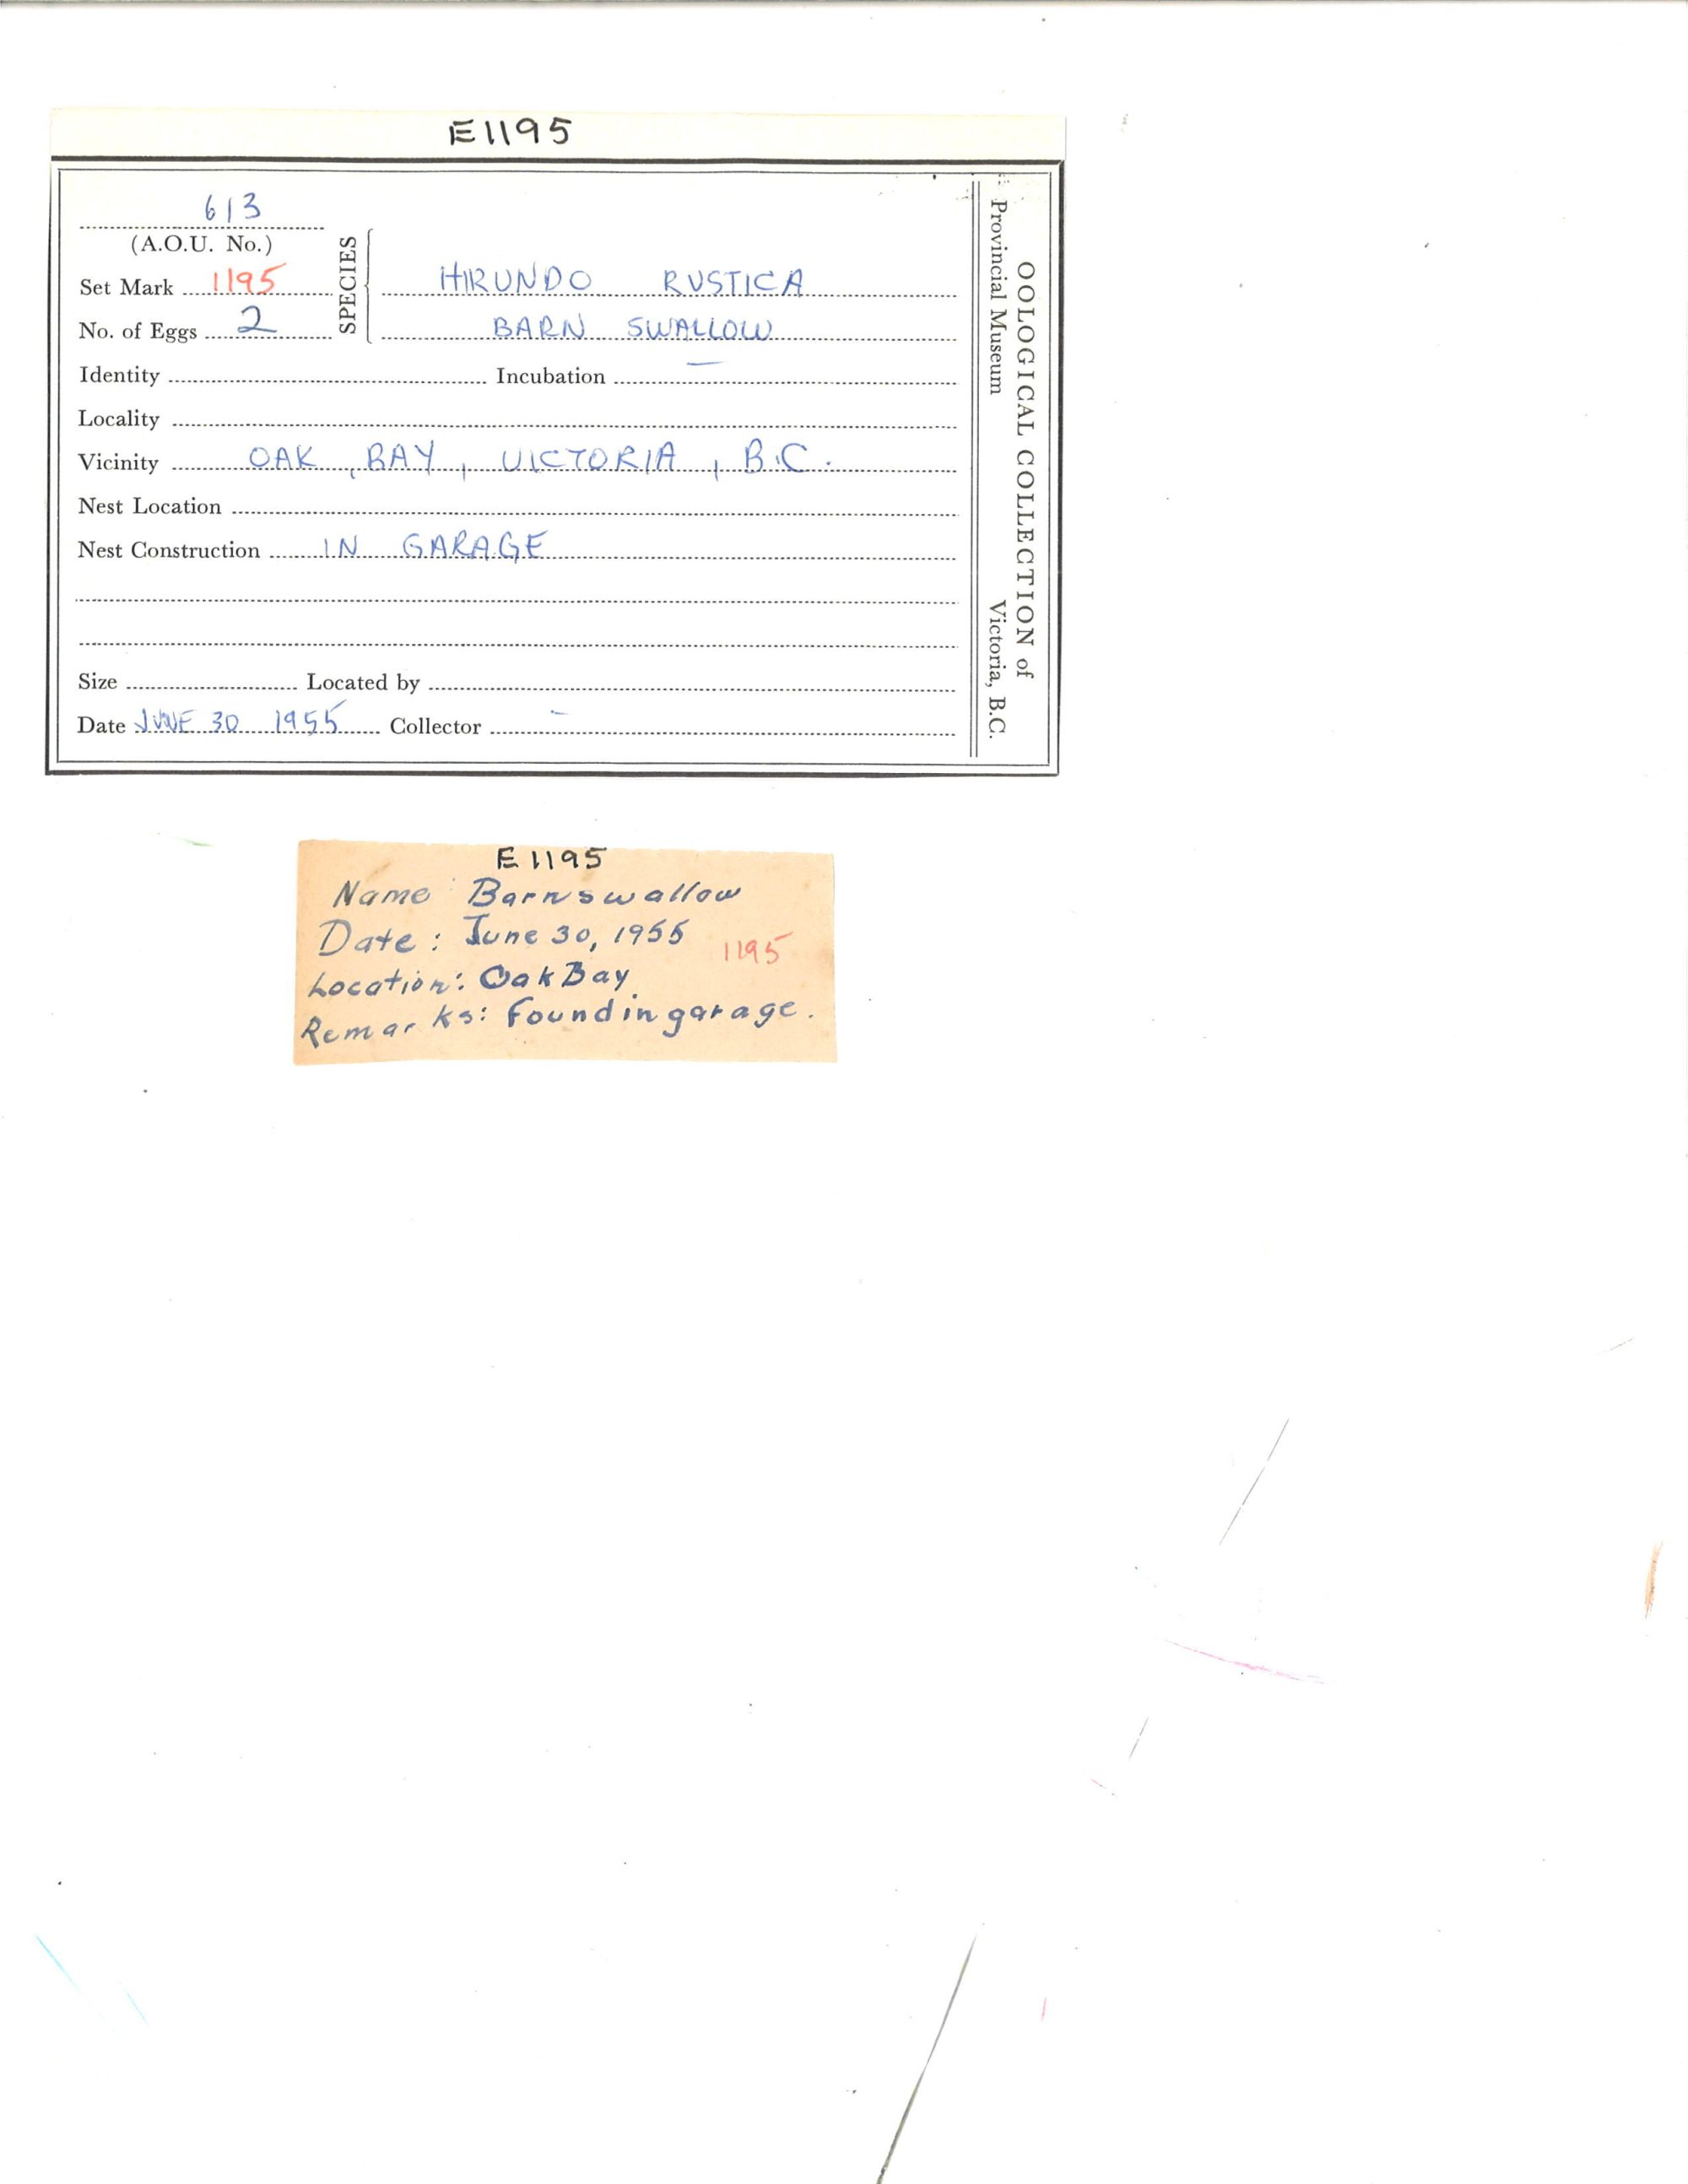 E1195
613
(A.O.U. No.)
Set Mark 1195
No. of Eggs 2
SPECIES
HIRUNDO RUSTICA
BARN SWALLOW
Identity Incubation —
Locality
Vicinity OAK BAY, VICTORIA, B.C.
Nest Location
Nest Construction IN GARAGE
Size Located by
Date JUNE 30 1955 Collector -
OOLOGICAL COLLECTION of
Provincial Museum Victoria, B.C.
E1195
Name Barnswallow
Date: June 30, 1955
1195
Location: Oak Bay
Remarks: Found in garage.